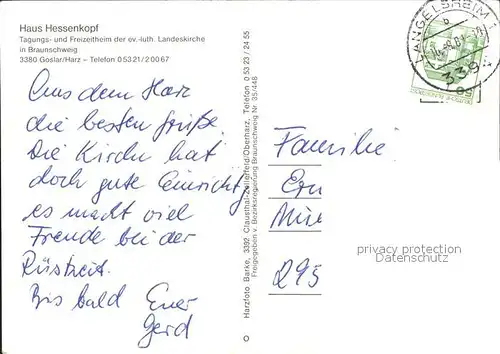 Haus Hessenkopf
Tagungs- und Freizeitheim der ev.-luth. Landeskirche
in Braunschweig
3380 Goslar/Harz – Telefon 0 53 21/2 00 67
Aus dem Harz
die besten Grüße.
Die Kirche hat
doch gute Einricht
es macht viel
Freude bei der
Rüstzeit.
Bis bald Euer
Gerd
Harzfoto Barke, 3392 Clausthal-Zellerfeld/Oberharz, Telefon 0 53 23 / 24 55
Freigegeben v. Bezirksregierung Braunschweig Nr. 35/448
LANGELSHEIM 1
b
339
50
Familie
295
privacy protection
Datenschutz